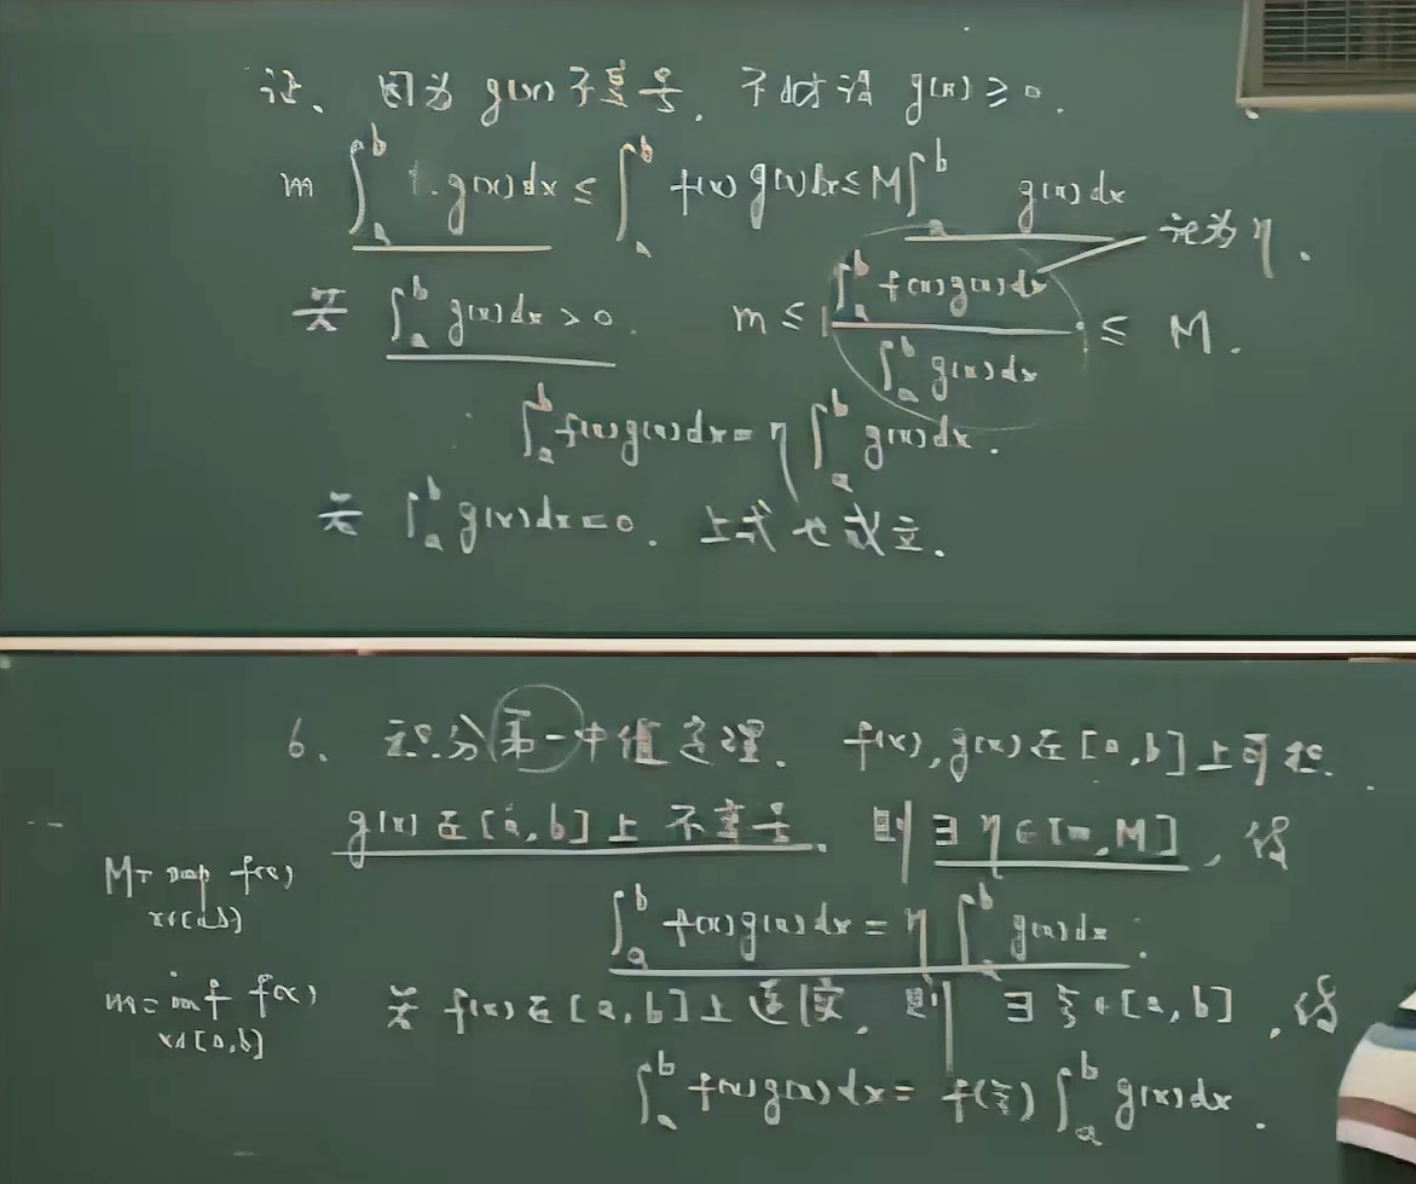 证、因为 g(x) 不变号. 不妨设 g(x) ≥ 0.
m ∫_a^b 1·g(x)dx ≤ ∫_a^b f(x) g(x)dx ≤ M∫_a^b g(x)dx
记为 η.
若 ∫_a^b g(x)dx > 0. m ≤ (∫_a^b f(x)g(x)dx)/(∫_a^b g(x)dx) ≤ M.
∫_a^b f(x)g(x)dx = η ∫_a^b g(x)dx.
若 ∫_a^b g(x)dx = 0. 上式也成立.
6. 积分第一中值定理. f(x), g(x) 在 [a,b] 上可积.
g(x) 在 [a,b] 上 不变号. 则 ∃ η ∈ [m,M], 使
M = sup f(x)
x∈[a,b]
∫_a^b f(x)g(x)dx = η ∫_a^b g(x)dx.
m = inf f(x)
x∈[a,b]
若 f(x) 在 [a,b] 上连续, 则 ∃ ξ∈[a,b], 使
∫_a^b f(x)g(x)dx = f(ξ) ∫_a^b g(x)dx.